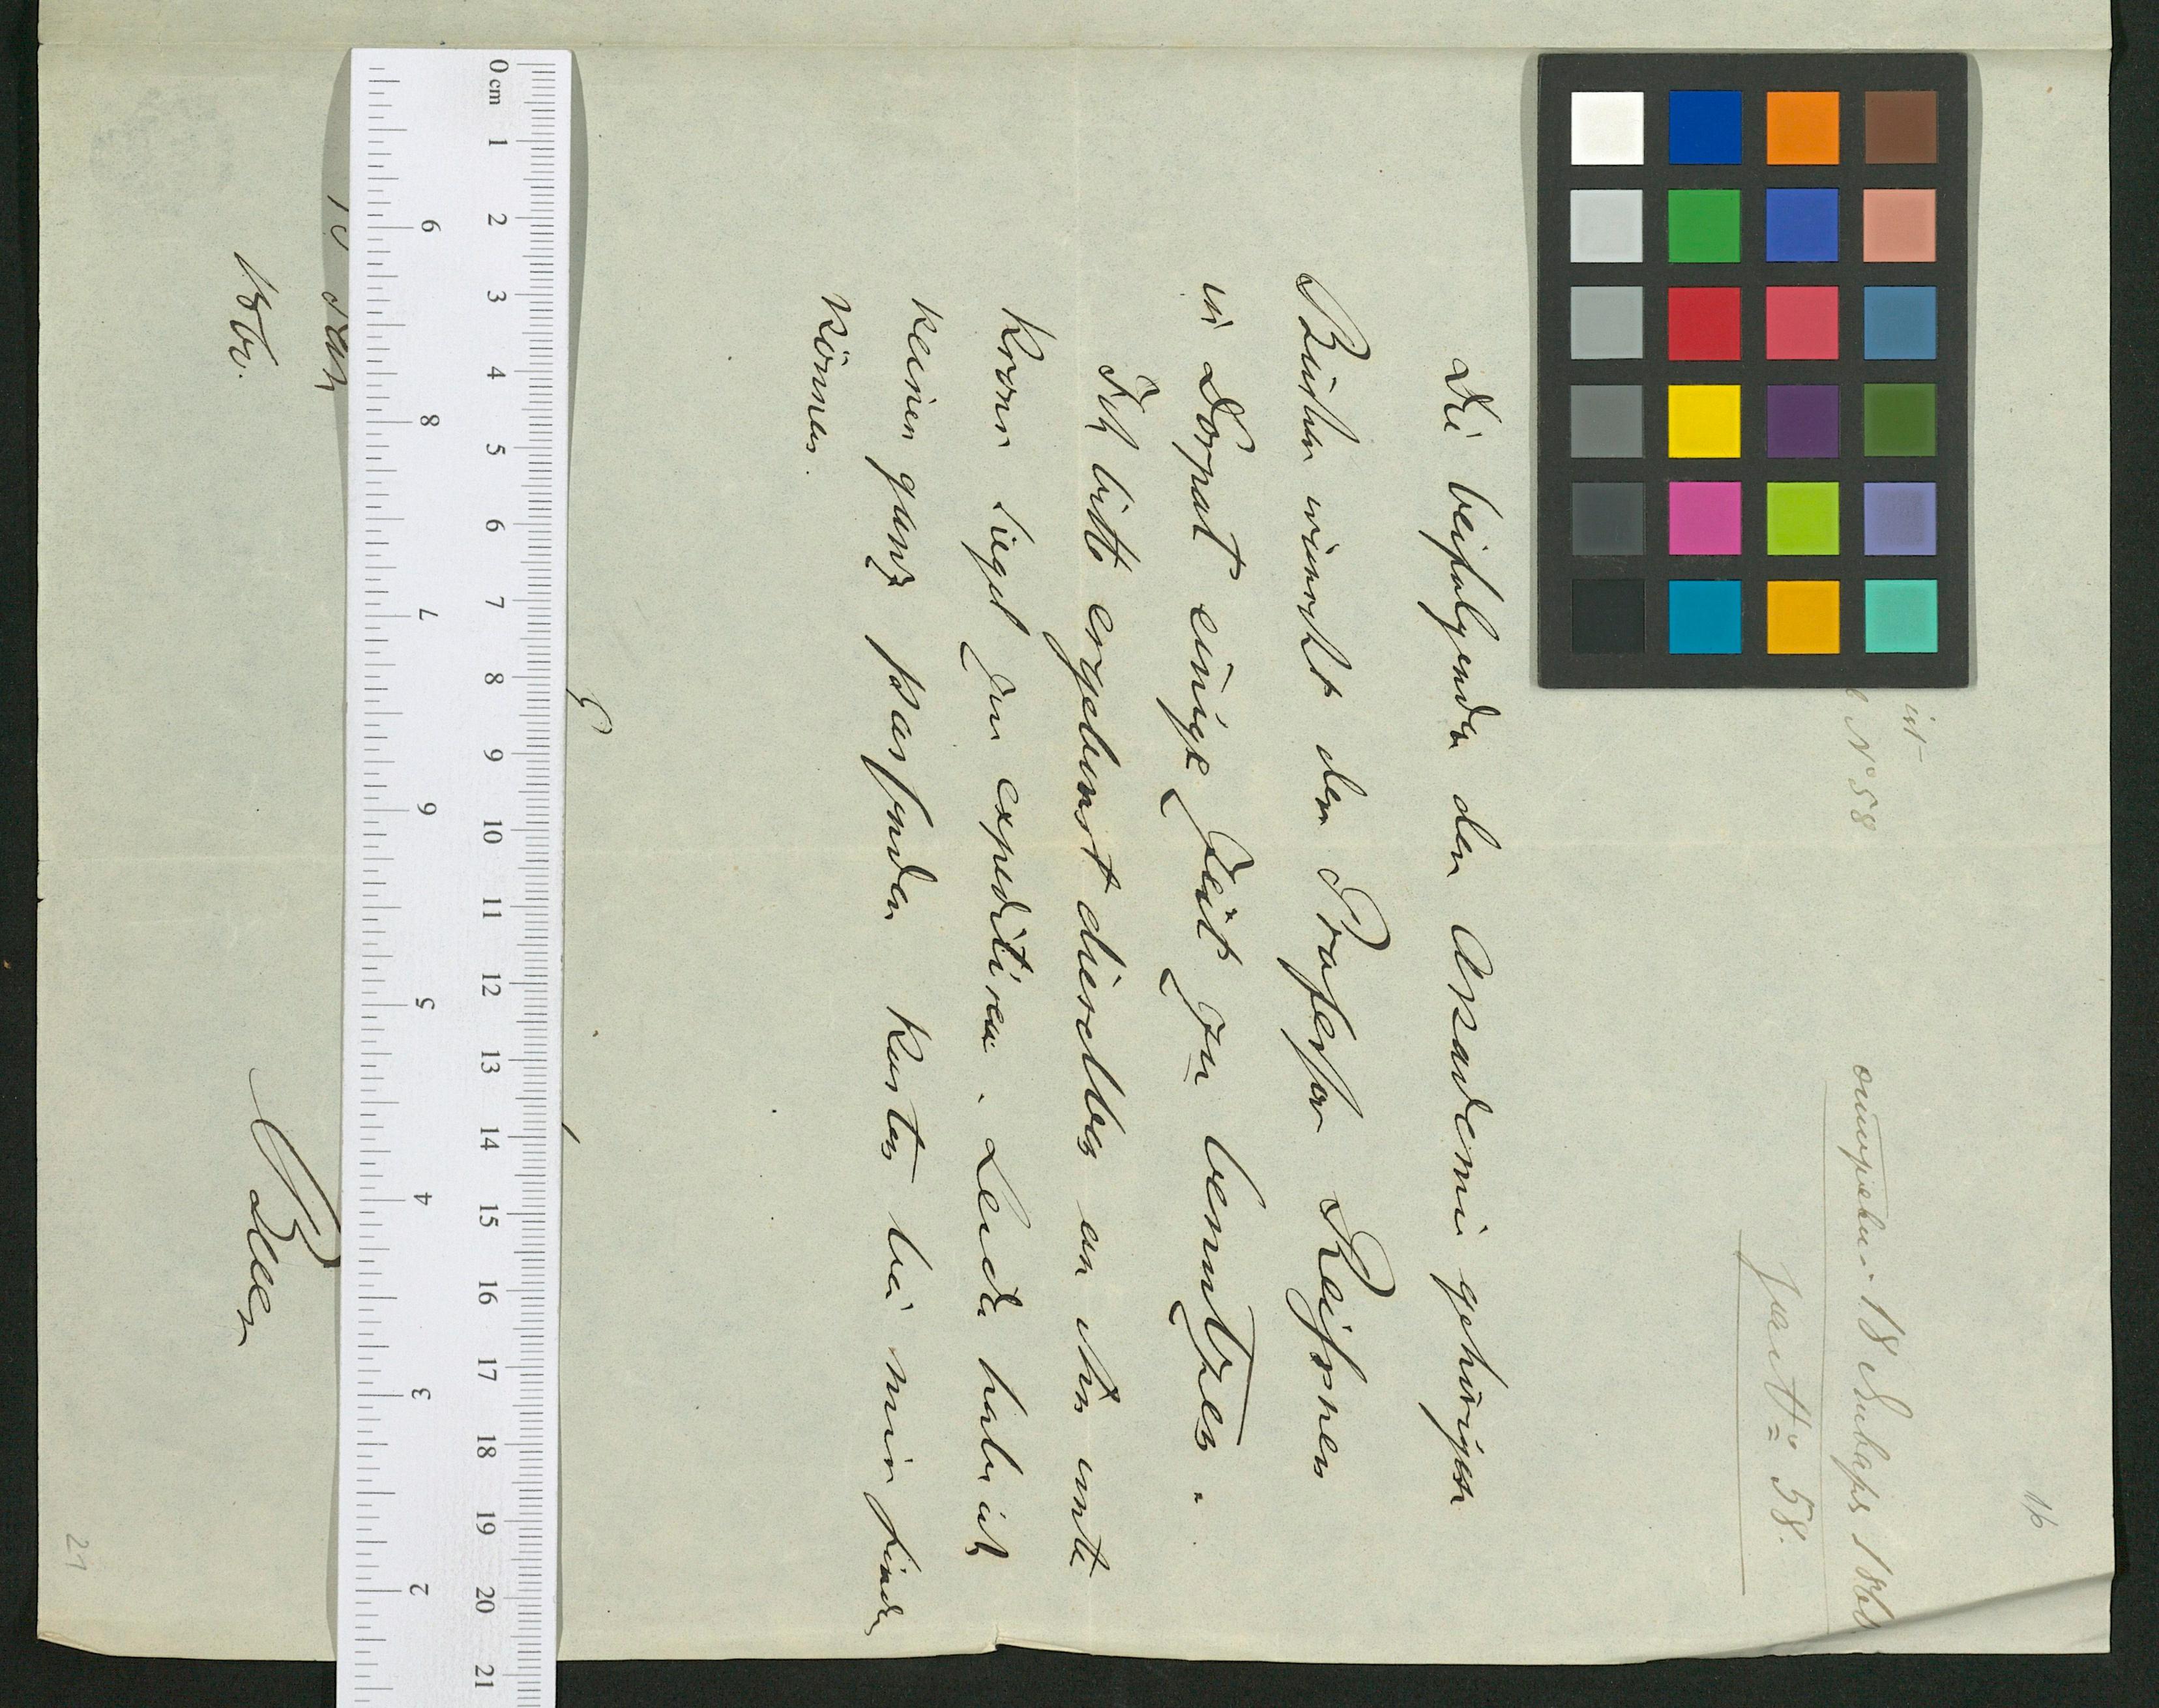 16
18 Января 1866
Fact: № 58.
N 58
Die beifolgenden der Academie gehörigen
Bücher wünscht der Professor Reissner
in Dorpat einige Zeit zu benutzen.
Ich bitte ergebenst dieselben an ihn unter
Krons Siegel zu expediren. Leider habe ich
keinen ganz passenden Kasten bei mir finden
können.
Baer
1866.
21
0 cm 1 2 3 4 5 6 7 8 9 10 11 12 13 14 15 16 17 18 19 20 21
9 8 7 6 5 4 3 2